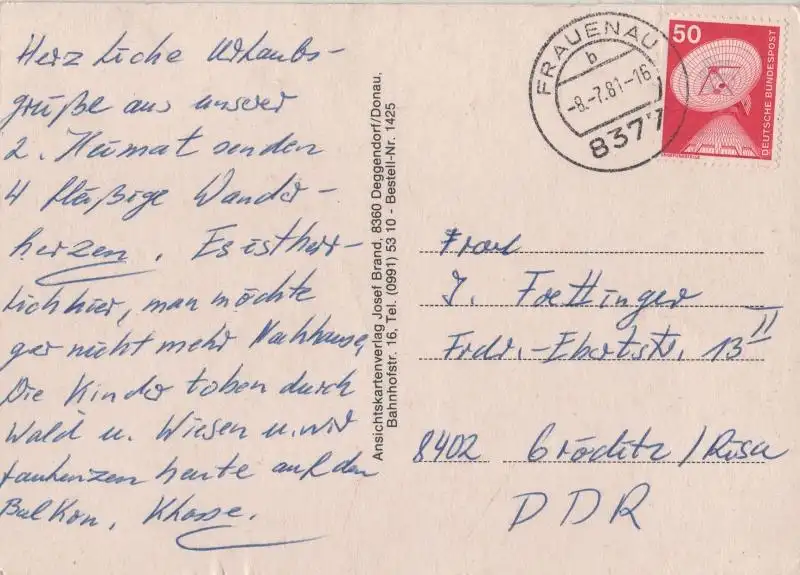 Herzliche Urlaubs-
grüße aus unserer
2. Heimat senden
4 fleißige Wander-
herzen. Es ist herr-
lich hier, man möchte
gar nicht mehr Nachhause,
Die Kinder toben durch
Wald u. Wiesen u. wir
faulenzen heute auf den
Balkon, Klasse.
Ansichtskartenverlag Josef Brand, 8360 Deggendorf/Donau,
Bahnhofstr. 16, Tel. (0991) 53 10 - Bestell-Nr. 1425
FRAUENAU
b
-8.-7.81-16
8377
50
DEUTSCHE BUNDESPOST
Frau
J. Foettinger
Frdr.-Ebertstr. 13 II
8402 Gröditz/Riesa
DDR